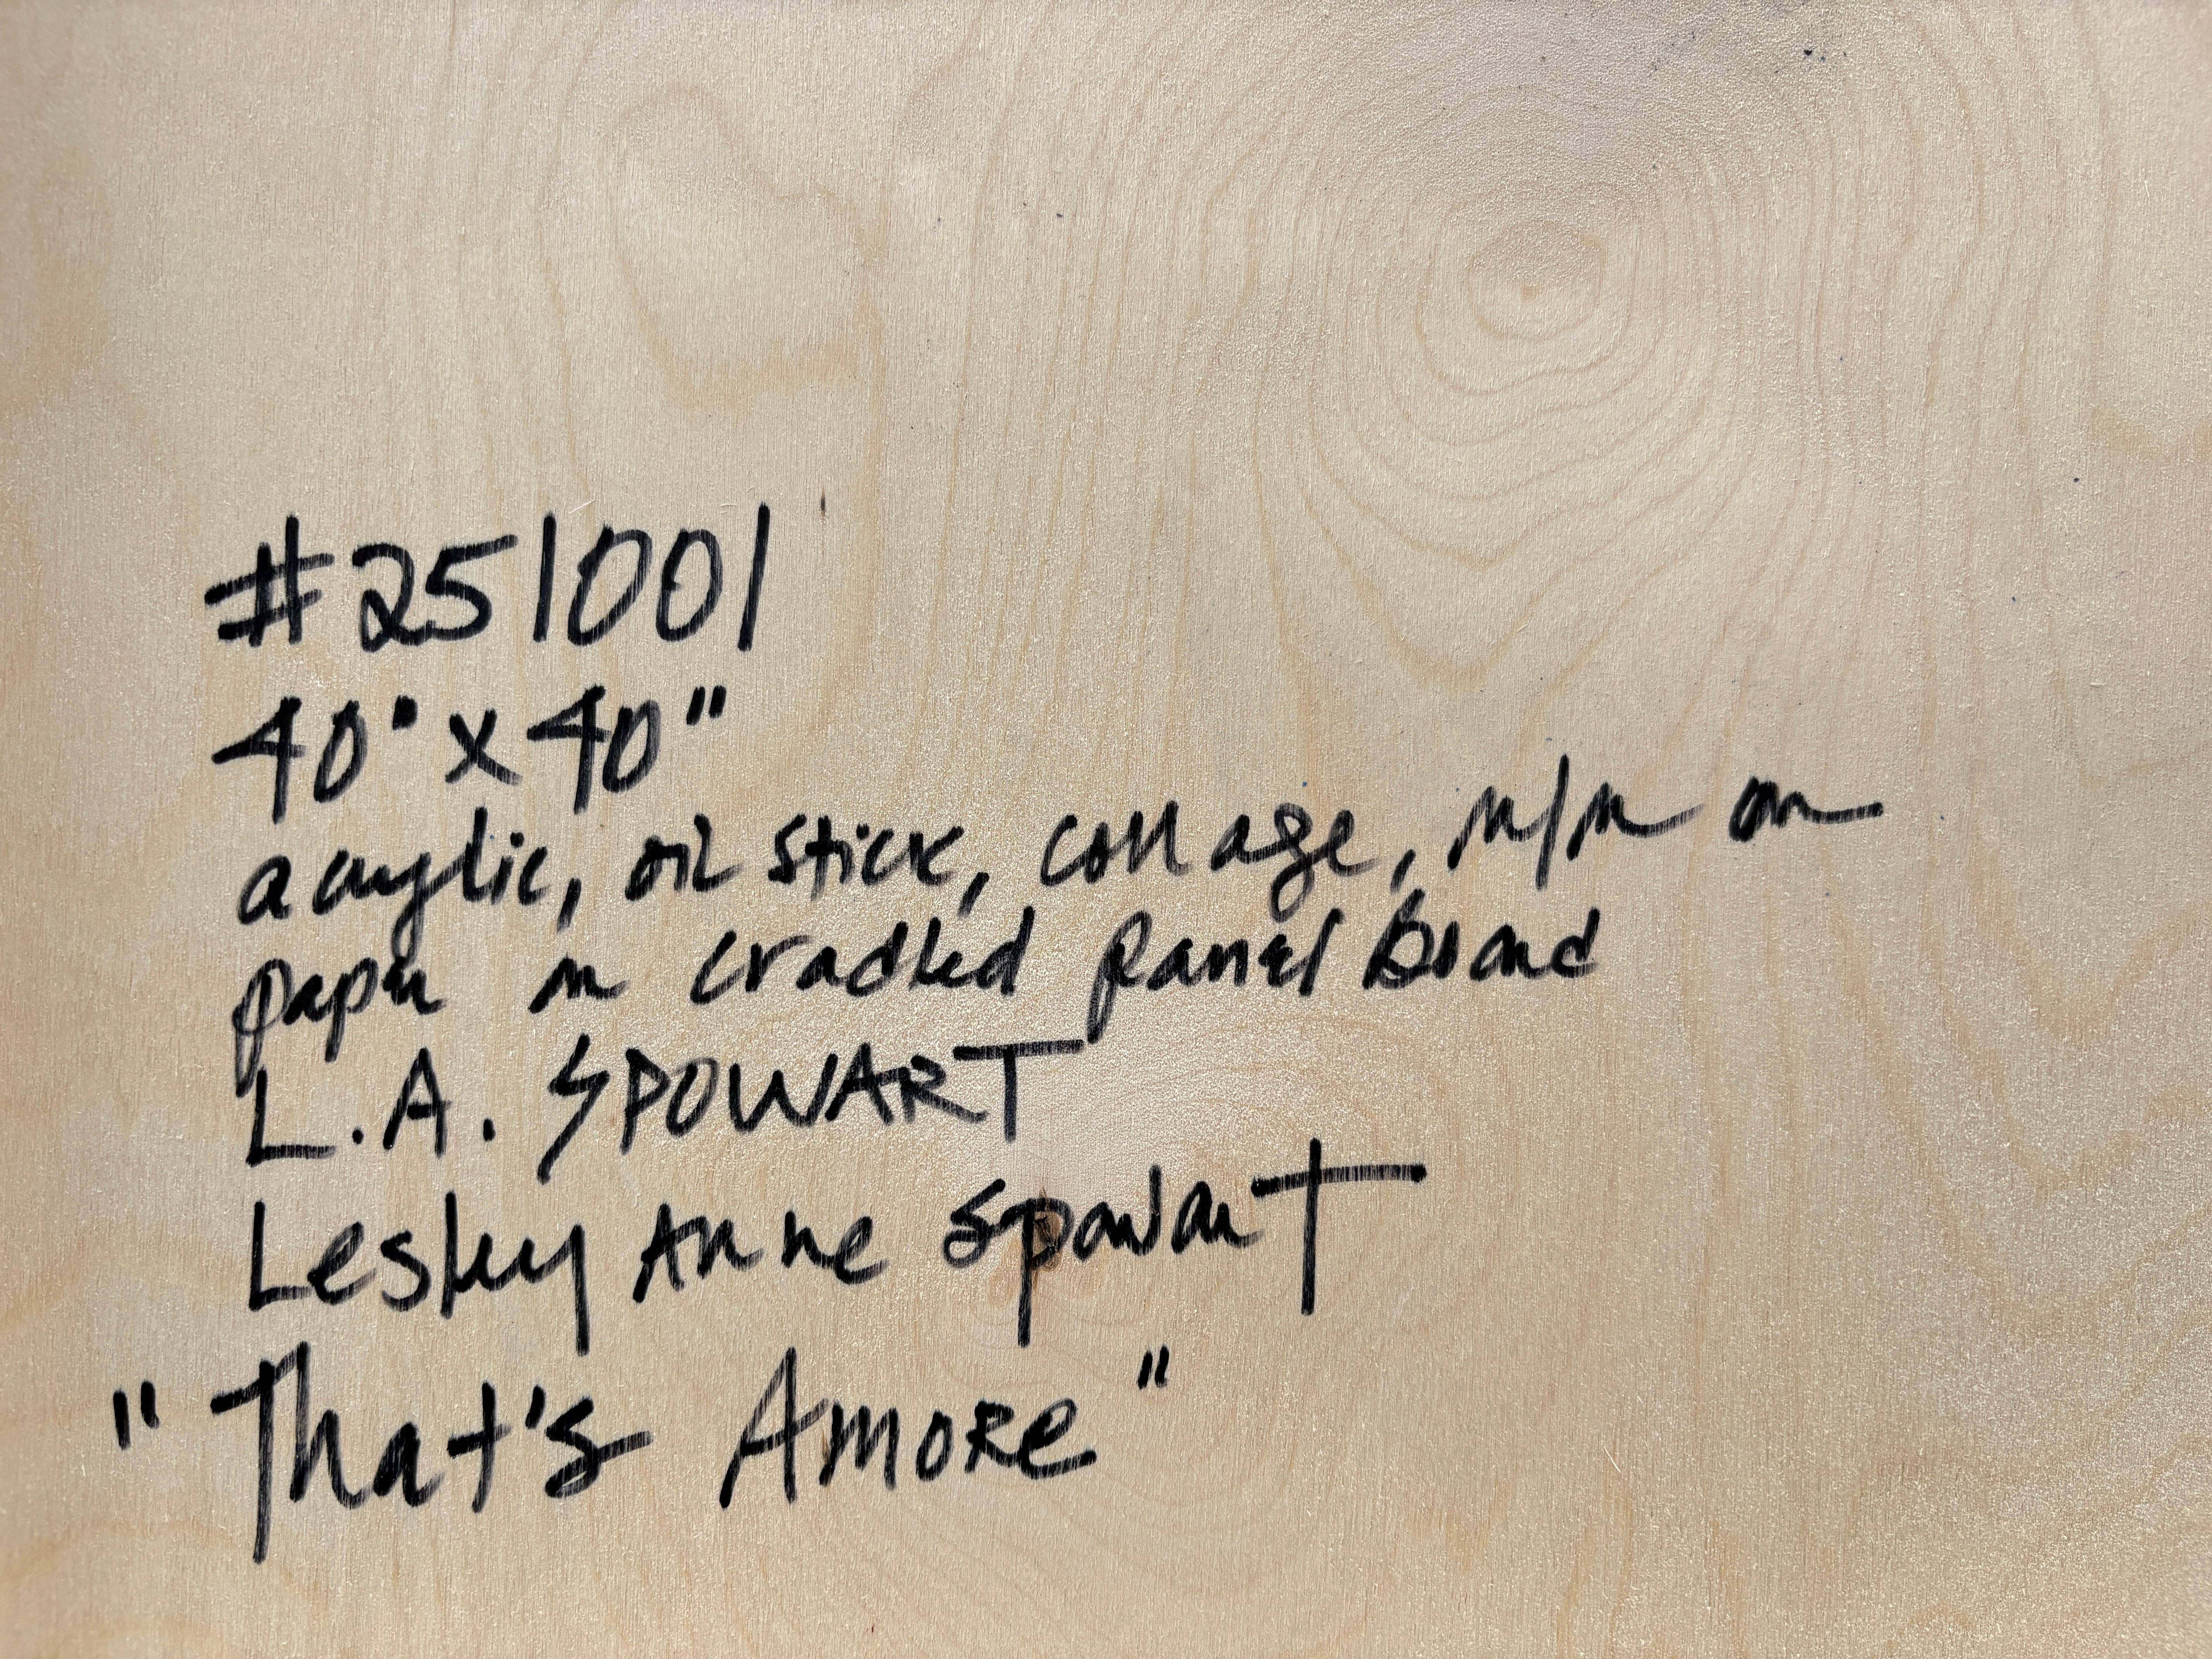 #251001
40" x 40"
acrylic, oil stick, collage, m/m on
paper on cradled panel board
L.A. SPOWART
Lesley Anne Spowart
"That's Amore"